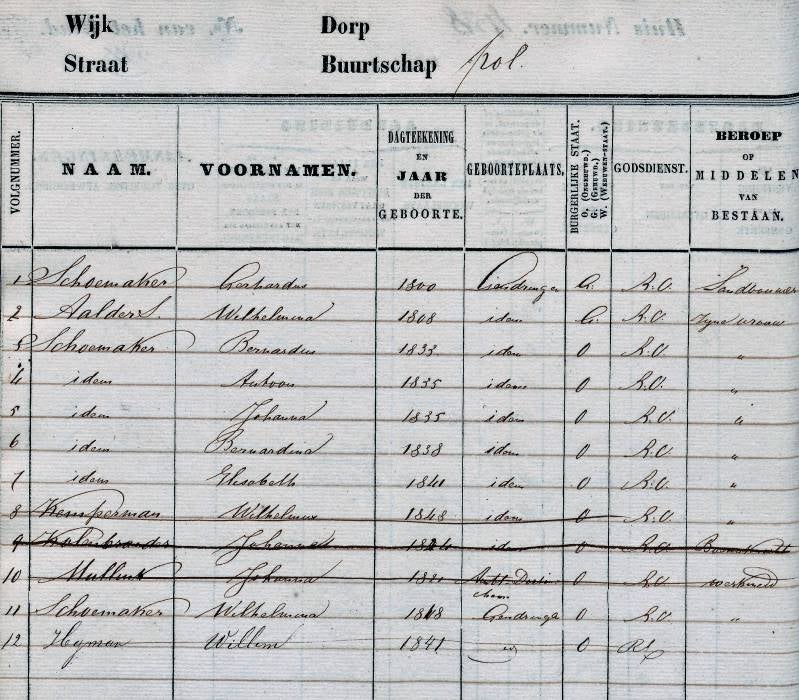 Wijk Dorp
Straat Buurtschap pol.
VOLGNUMMER. NAAM. VOORNAMEN. DAGTEEKENING EN JAAR DER GEBOORTE. GEBOORTEPLAATS, BURGERLIJKE STAAT. O. (ONGEHUWD.) G. (GEHUWD.) W. (WEDUWEN-STAAT.) GODSDIENST. BEROEP OF MIDDELEN VAN BESTAAN.
1 Schoemaker Gerhardus 1800 Gendringe G. R.C. Landbouwer
2 Aalders. Wilhelmina 1808 idem G. R.C. Zijne vrouw
3 Schoemaker Bernardus 1833 idem O R.C. "
4 idem Antoon 1835 idem O R.C. "
5 idem Johanna 1835 idem O R.C. "
6 idem Bernardina 1838 idem O R.C. "
7 idem Elisabeth 1841 idem O R.C. "
8 Kemperman Wilhelmus 1848 idem O R.C. "
9 idem O R.C.
10 Johanna O R.C. werkmeid
11 Schoemaker Wilhelmina 1848 Gendringe O R.C. "
12 Heyman Willem 1841 O